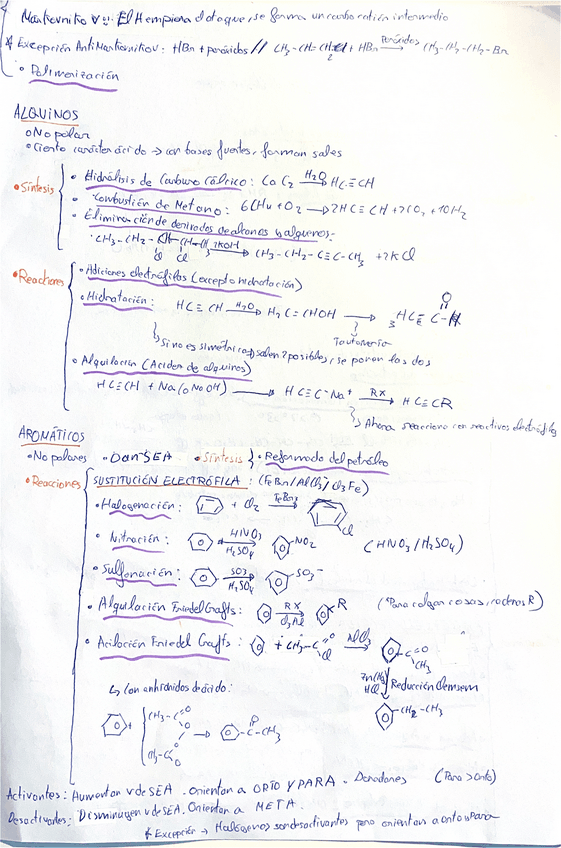 Markovnikov ∀ ∵. El H empiona
se forma un carbo catión intermedio
* Excepción AntiMarkovnikov: HBr + peróxidos // CH₃-CH=CH₂ + HBr Peróxidos → CH₃-CH₂-CH₂-Br
• Polimerización
ALQUINOS
• No polar
• Cierto carácter ácido → con bases fuertes, forman sales
• Síntesis
• Hidrólisis de Carburo Cálcico: CaC₂ H₂O → HC≡CH
• Combustión de Metano: 6CH₄ + O₂ → 2HC≡CH + 2CO₂ + 10H₂
• Eliminación de derivados de alcanos y alquenos-
• CH₃-CH₂- 2KOH → CH₃-CH₂-C≡C-CH₃ + 2KCl
Cl Cl
• Reacciones
• Adiciones electrófilas (excepto hidratación)
• Hidratación: HC≡CH H₂O → H₂C=CHOH → ₃HC C-H
O
Tautomería
Si no es simétrico, salen 2 posibles, se ponen los dos
• Alquilación (Acidez de alquinos)
HC≡CH + Na (o NaOH) → HC≡C⁻Na⁺ RX → HC≡CR
Ahora reacciona con reactivos electrófilos
AROMÁTICOS
• No polares • Dan SEA • Síntesis • Reformado del petróleo
• Reacciones
SUSTITUCIÓN ELECTRÓFILA: (FeBr₃/AlCl₃/Cl₃Fe)
• Halogenación: + Cl₂ FeBr₃ → Cl
• Nitración: HNO₃ H₂SO₄ NO₂ (HNO₃/H₂SO₄)
• Sulfonación: SO₃ H₂SO₄ → SO₃⁻
• Alquilación Friedel Crafts: RX Cl₃Al → R (Para colgar cosas, cadenas R)
• Acilación Friedel Crafts: + CH₃-C O Cl AlCl₃ → C O CH₃
Zn(Hg) HCl Reducción Clemsem
↳ Con anhídridos de ácido: CH₂-CH₃
+ CH₃-C O O CH₃-C O → O C-CH₃
Activantes: Aumentan v de SEA. Orientan a ORTO Y PARA. Donadores (Para > orto)
Desactivantes: Disminuyen v de SEA. Orientan a META.
* Excepción → Halógenos son desactivantes pero orientan a orto y para